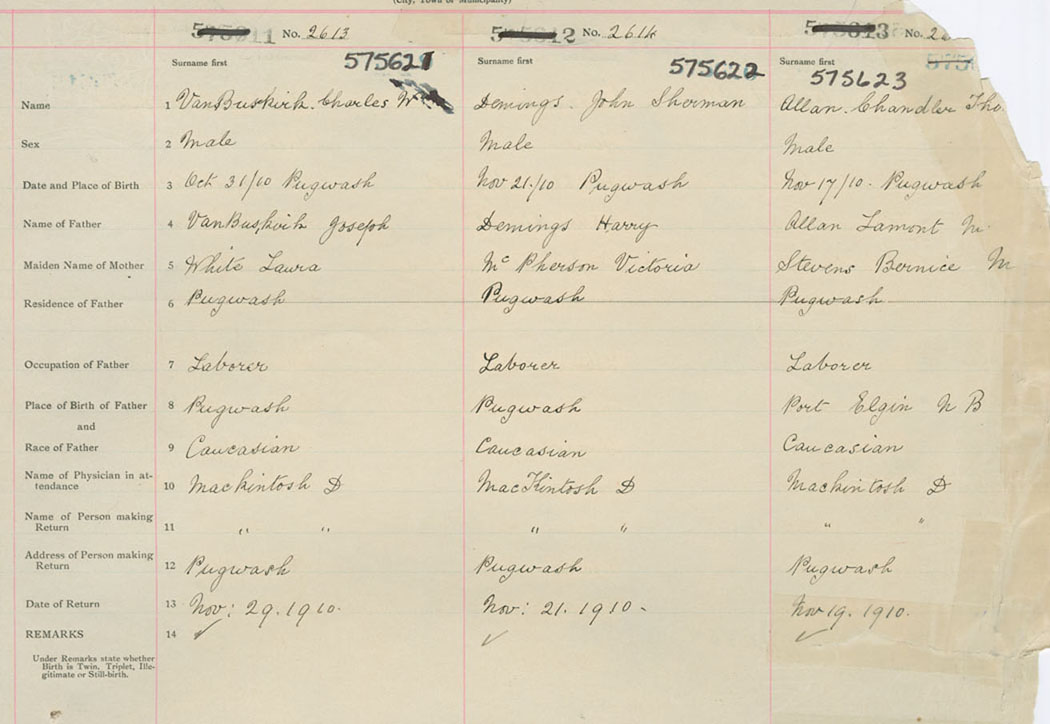 (City, Town or Municipality)
No. 2613 No. 2614 No.
Surname first 575621 Surname first 575622 Surname first 575623
Name 1 VanBuskirk. Charles Demings. John Sherman Allan. Chandler Tho
Sex 2 Male Male Male
Date and Place of Birth 3 Oct 31/10 Pugwash Nov 21/10 Pugwash Nov 17/10. Pugwash
Name of Father 4 VanBuskirk Joseph Demings Harry Allan Lamont
Maiden Name of Mother 5 White Laura McPherson Victoria Stevens Bernice M
Residence of Father 6 Pugwash Pugwash Pugwash
Occupation of Father 7 Laborer Laborer Laborer
Place of Birth of Father 8 Pugwash Pugwash Port Elgin N B
and
Race of Father 9 Caucasian Caucasian Caucasian
Name of Physician in at-
tendance 10 Mackintosh D MacKintosh D Mackintosh D
Name of Person making
Return 11 " " " " " "
Address of Person making
Return 12 Pugwash Pugwash Pugwash
Date of Return 13 Nov: 29. 1910. Nov: 21. 1910 - Nov 19. 1910.
REMARKS 14 ✓ ✓ ✓
Under Remarks state whether
Birth is Twin, Triplet, Ille-
gitimate or Still-birth.